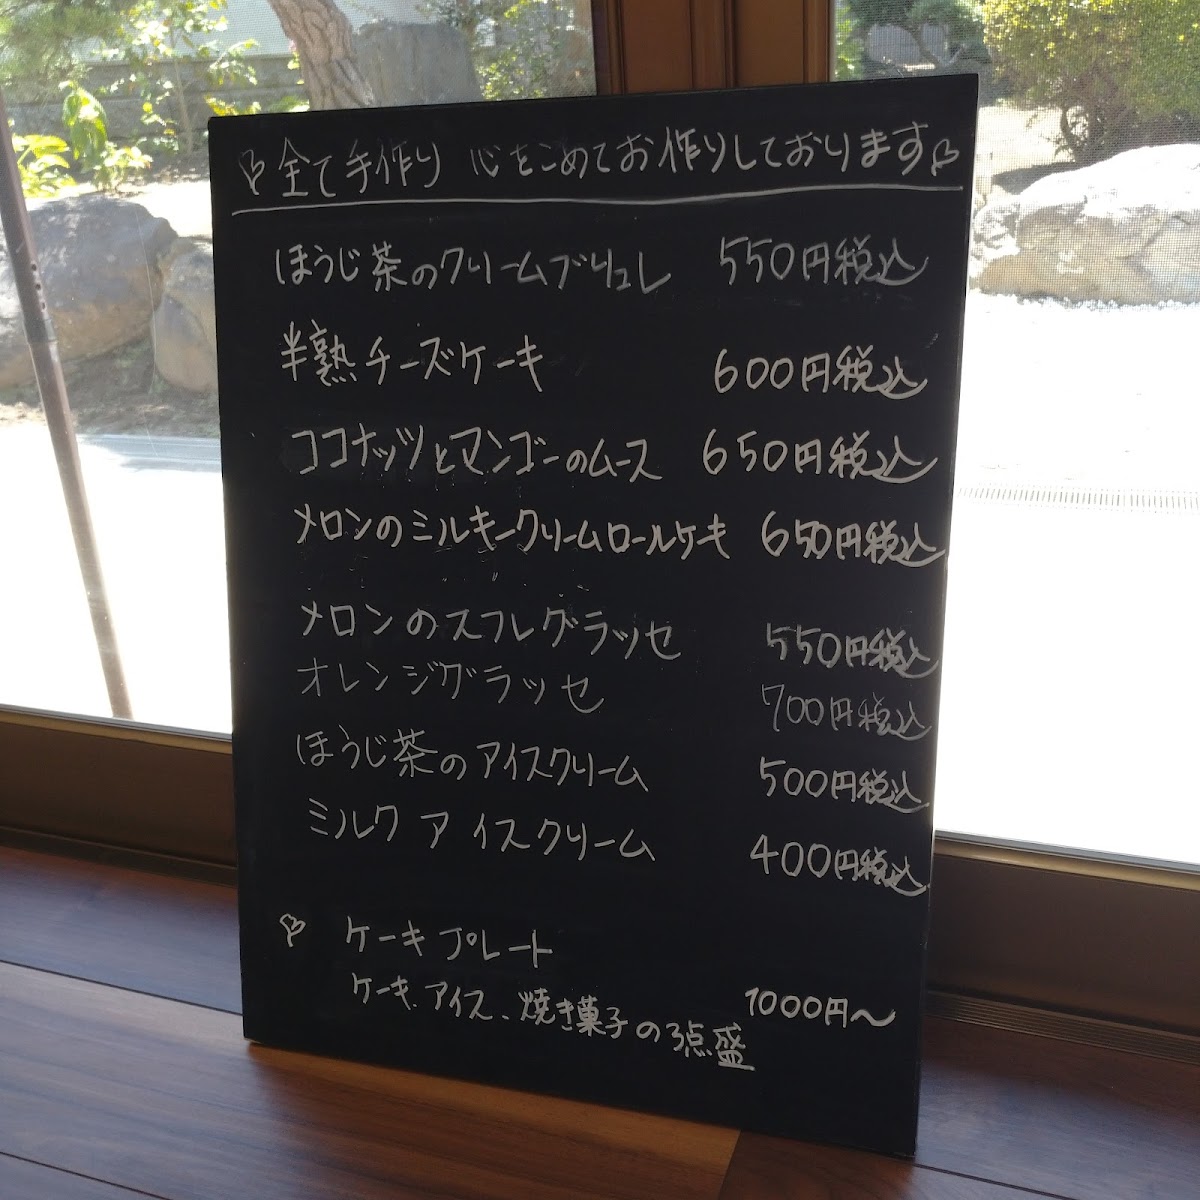 全て手作り 心をこめてお作りしております
ほうじ茶のクリームブリュレ 550円税込
半熟チーズケーキ 600円税込
ココナッツとマンゴーのムース 650円税込
メロンのミルキークリームロールケーキ 650円税込
メロンのスフレグラッセ 550円税込
オレンジグラッセ 700円税込
ほうじ茶のアイスクリーム 500円税込
ミルクアイスクリーム 400円税込
ケーキプレート
ケーキ、アイス、焼き菓子の3点盛 1000円〜